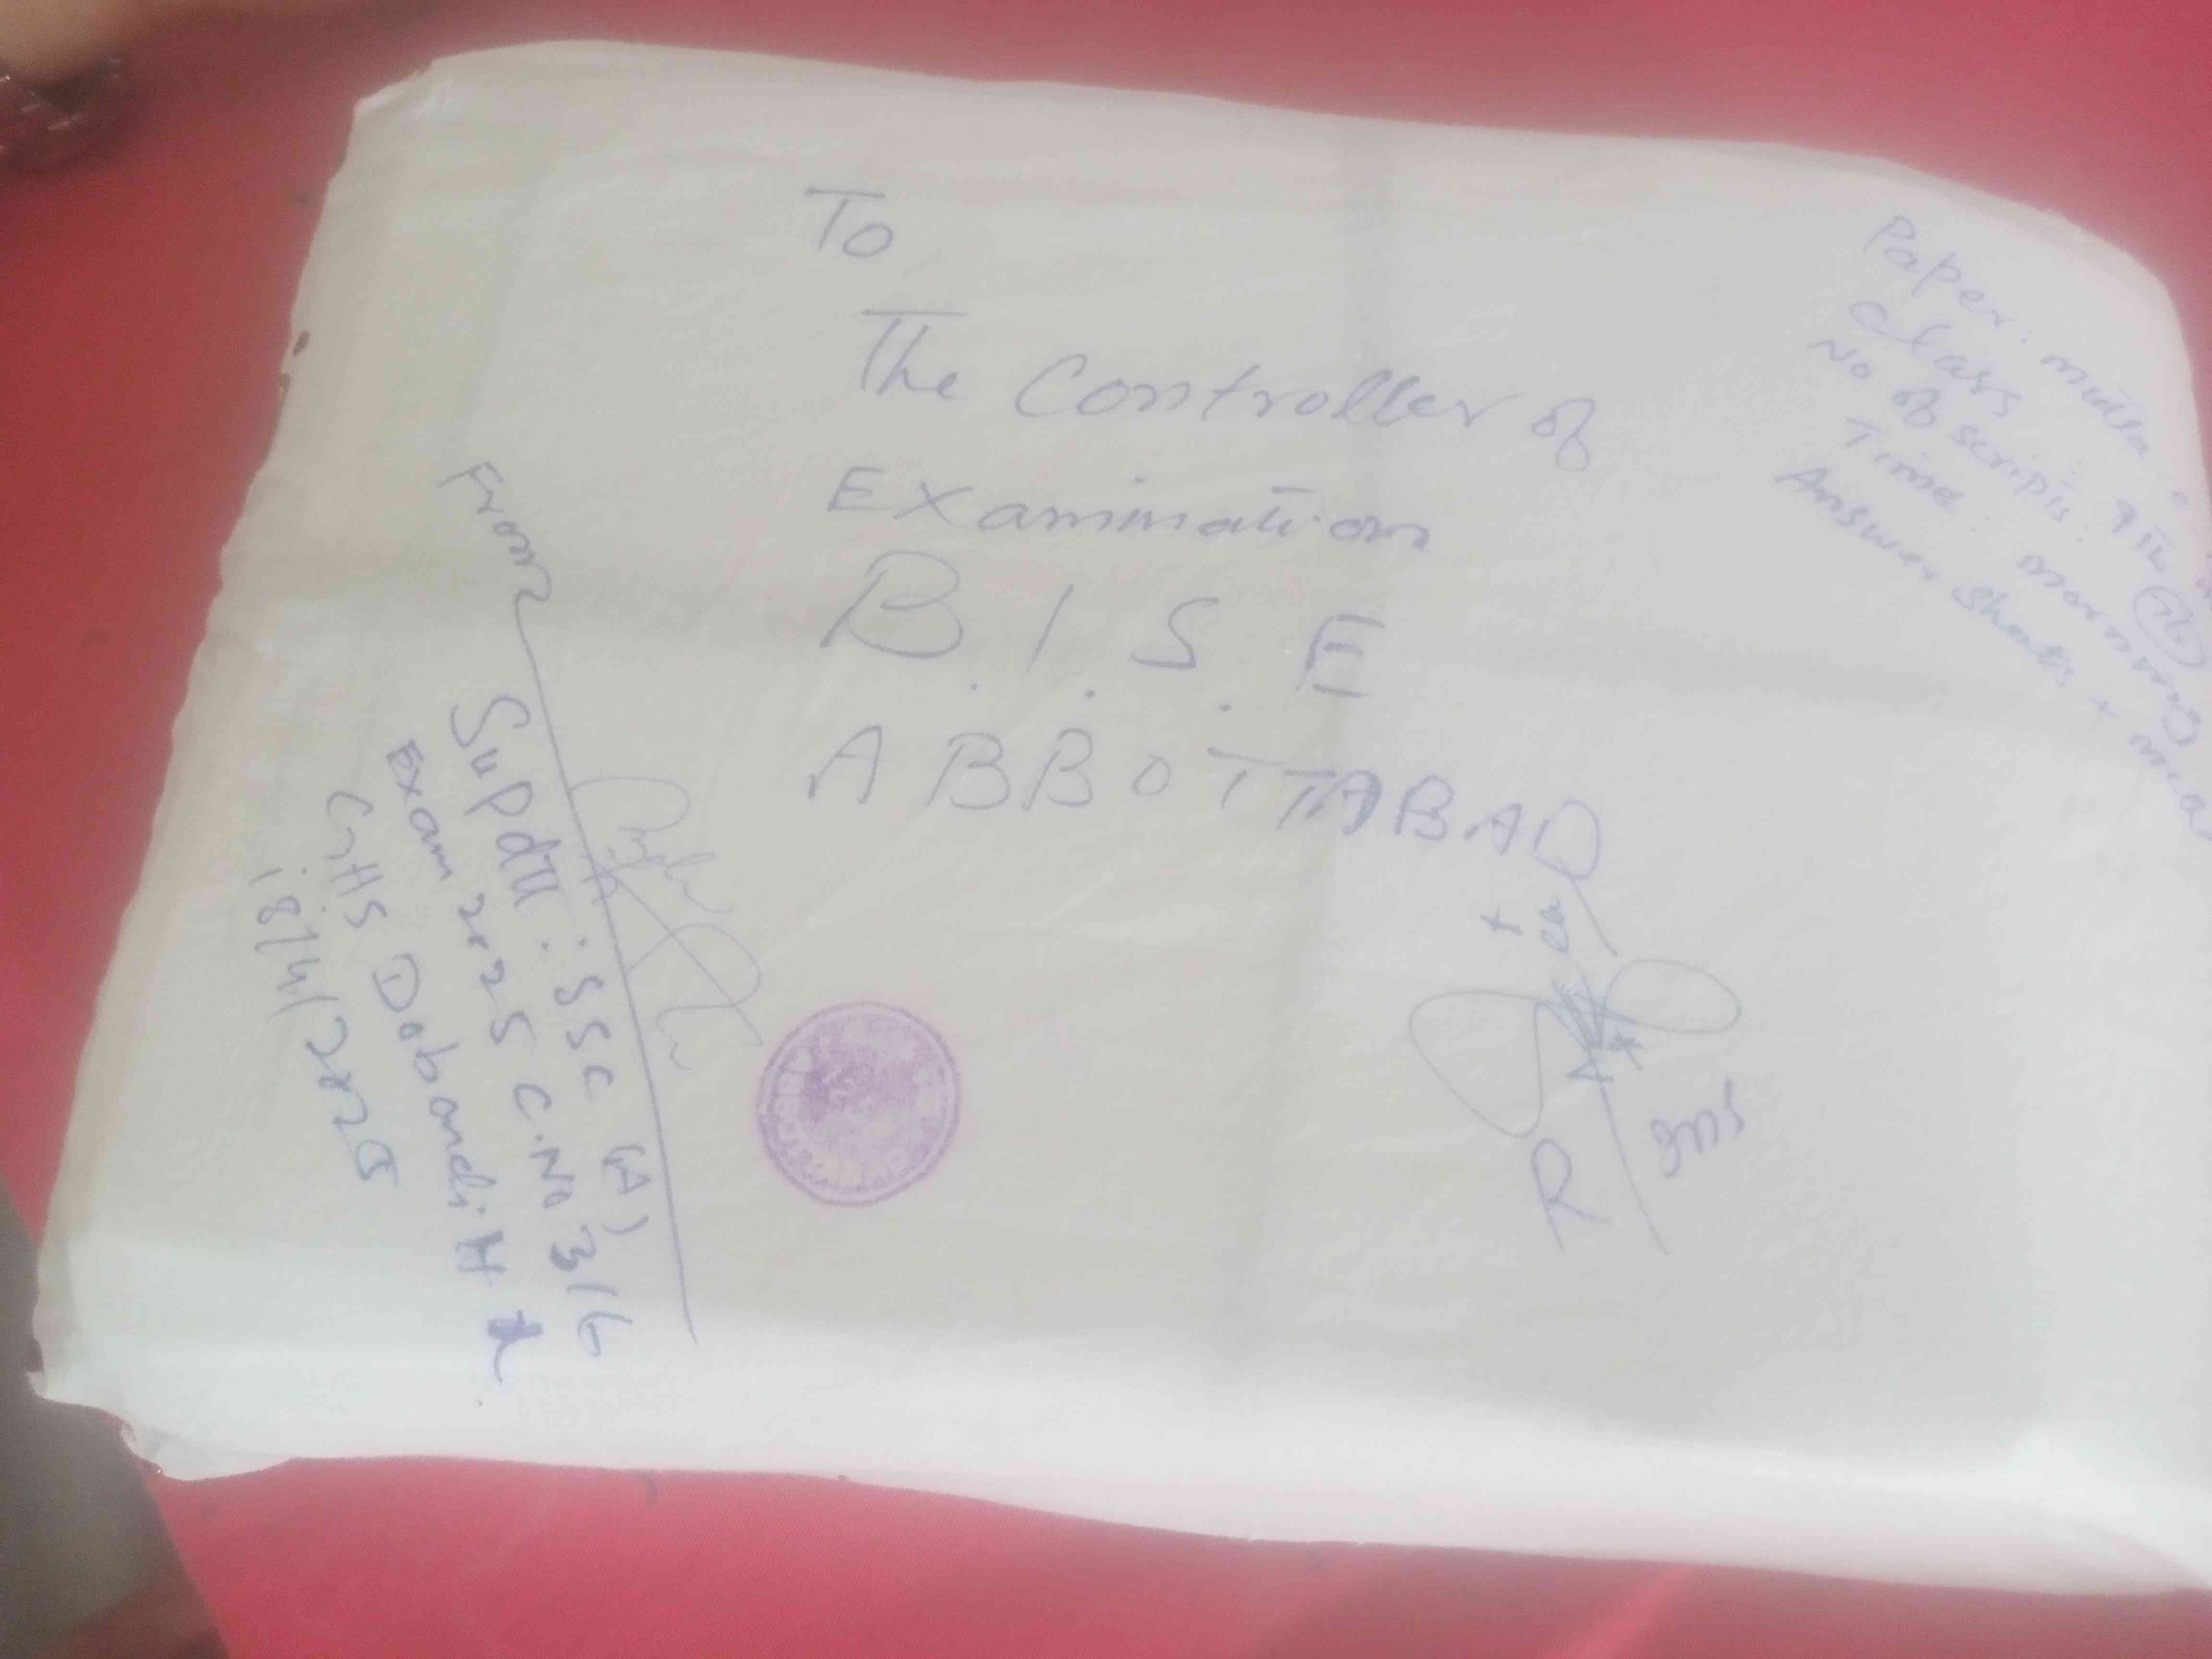 To
The Controller of
Examination
B.I.S.E
ABBOTTABAD
Paper:
Class
No of scripts:
Time: morning
Answer Sheets +
From
Supdtt: SSC (A)
Exam 2025 C.No 316
GHS Dobandi H
18/4/2025